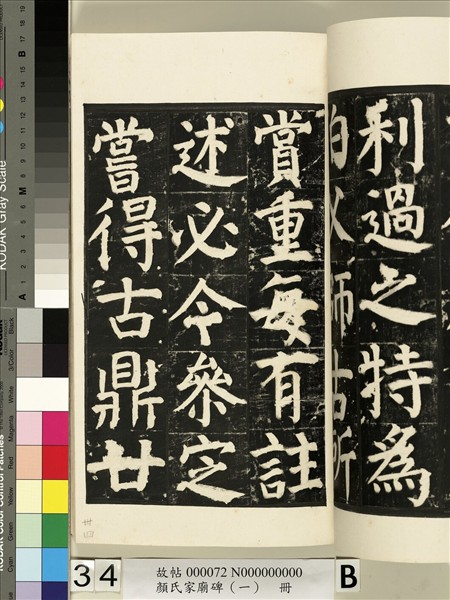 利過之特為
伯父師古所
賞重每有註
述必令參定
嘗得古鼎廿
34
故帖 000072 N000000000
顏氏家廟碑（一） 冊
B
KODAK Gray Scale
A 1 2 3 4 5 6 M 8 9 10 11 12 13 14 15 B 17 18 19
KODAK Color Control Patches
Blue Cyan Green Yellow Red Magenta White 3/Color Black